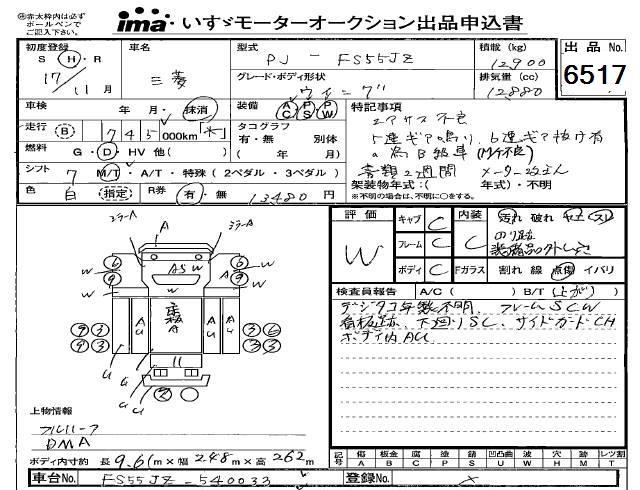 ㊟赤太枠内は必ず ima いすゞモーターオークション出品申込書
ボールペンで
ご記入下さい。
初度登録 車名 型式 PJ - FS55JZ 積載 (kg) 12900 出品 No.
S・H・R 三菱 グレード・ボディ形状 排気量 (cc) 6517
17/11月 ウイング 12880
車検 年 月・抹消 装備 AC PS PW 特記事項
エアサス不良
走行 B 745000km タコグラフ
有・無 別体
5連ギア鳴り、6速ギア抜け有
燃料 G・D・HV 他( ) ( 年 月)
a 為B級車
シフト 7 M/T・A/T・特殊(2ペダル・3ペダル)
書類2週間
架装物年式:( 年式)・不明
色 白 指定 R券 有・無 13480円 ※不明の場合は、不明に○をする。
評価 キャブ C 内装 汚れ 破れ ヤニ スリ
W フレーム C C
ボディ C Fガラス 割れ 線 点傷 イバリ
検査員報告 A/C( ) B/T(上がり)
デジタコ年数不明、フレームSCW
看板跡、下廻りSC、サイドガードCH
ボディ内AU
ミラーA A ミラーA
6 W ASW 6 W
9 W 9 W
A A
U U A
9 3 3 6
9 3 3 3
U U U
2
上物情報
フルハーフ
DMA
ボディ内寸約 長9.61m×幅248m×高262m
記号 傷 板金 腐 塗 錆 凹凸曲 波 穴 跡 レツ割
A B C P S U W H M T
車台No. FS55JZ-540033 登録No.